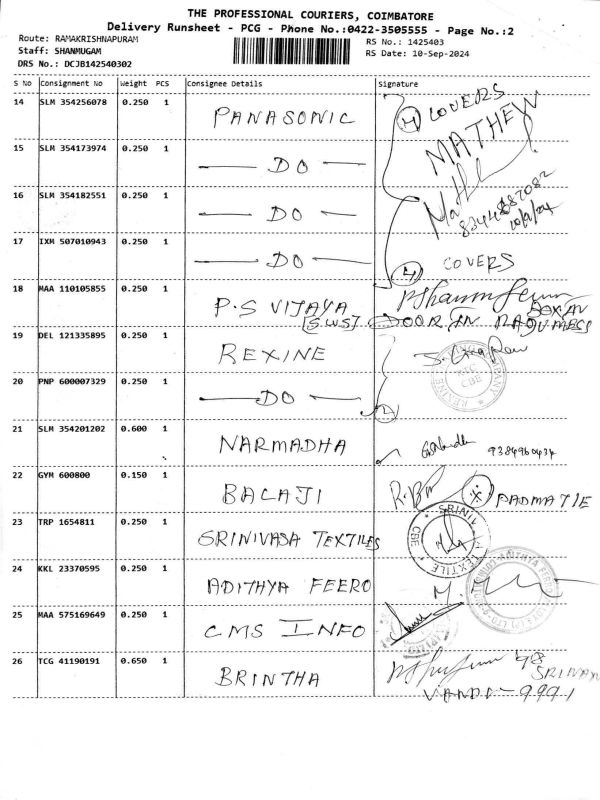 THE PROFESSIONAL COURIERS, COIMBATORE
Delivery Runsheet - PCG - Phone No.:0422-3505555 - Page No.:2
Route: RAMAKRISHNAPURAM
Staff: SHANMUGAM
DRS No.: DCJB142540302
RS No.: 1425403
RS Date: 10-Sep-2024
S No Consignment No Weight PCS Consignee Details Signature
14 SLM 354256078 0.250 1 PANASONIC 4 COVERS
MATHEW
15 SLM 354173974 0.250 1 DO
16 SLM 354182551 0.250 1 DO
17 IXM 507010943 0.250 1 DO 4 COVERS
18 MAA 110105855 0.250 1 P.S VIJAYA
[SWS] DOOR IN
19 DEL 121335895 0.250 1 REXINE
20 PNP 600007329 0.250 1 DO 2
21 SLM 354201202 0.600 1 NARMADHA 9384960434
22 GYM 600800 0.150 1 BALAJI PADMATIE
23 TRP 1654811 0.250 1 SRINIVASA TEXTILES
24 KKL 23370595 0.250 1 ADITHYA FEERO
25 MAA 575169649 0.250 1 CMS INFO
26 TCG 41190191 0.650 1 BRINTHA